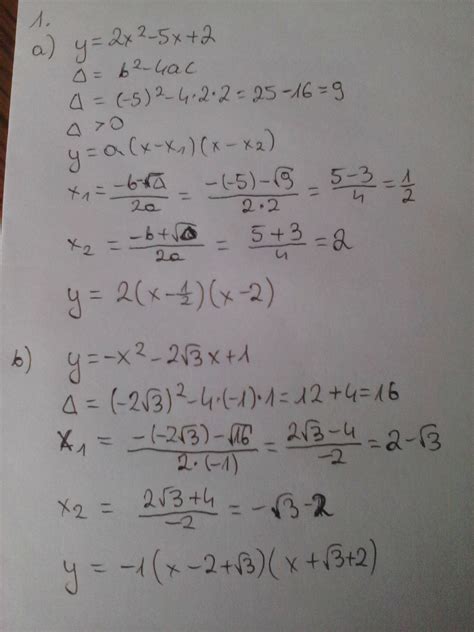 1.
a) y = 2x² - 5x + 2
Δ = b² - 4ac
Δ = (-5)² - 4·2·2 = 25 - 16 = 9
Δ > 0
y = a(x - x₁)(x - x₂)
x₁ = (-b - √Δ)/(2a) = (-(-5) - √9)/(2·2) = (5 - 3)/4 = 1/2
x₂ = (-b + √Δ)/(2a) = (5 + 3)/4 = 2
y = 2(x - 1/2)(x - 2)
b) y = -x² - 2√3x + 1
Δ = (-2√3)² - 4·(-1)·1 = 12 + 4 = 16
x₁ = (-(-2√3) - √16)/(2·(-1)) = (2√3 - 4)/(-2) = 2 - √3
x₂ = (2√3 + 4)/(-2) = -√3 - 2
y = -1(x - 2 + √3)(x + √3 + 2)